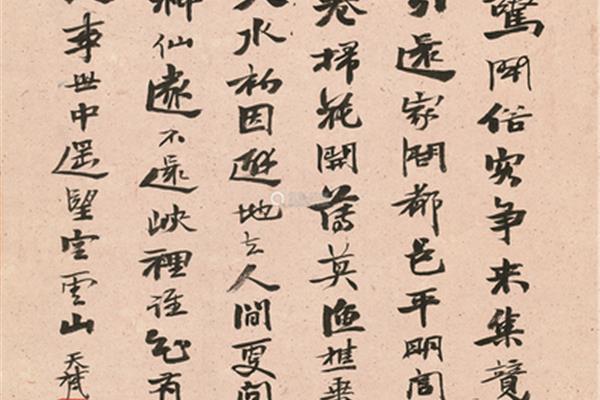 驚聞俗客争来集競
引還家問都邑平明閭
巷掃花開薄莫漁樵乘
水初因避地去人間更問
神仙遂不還峽裡誰知有
事世中遥望空雲山